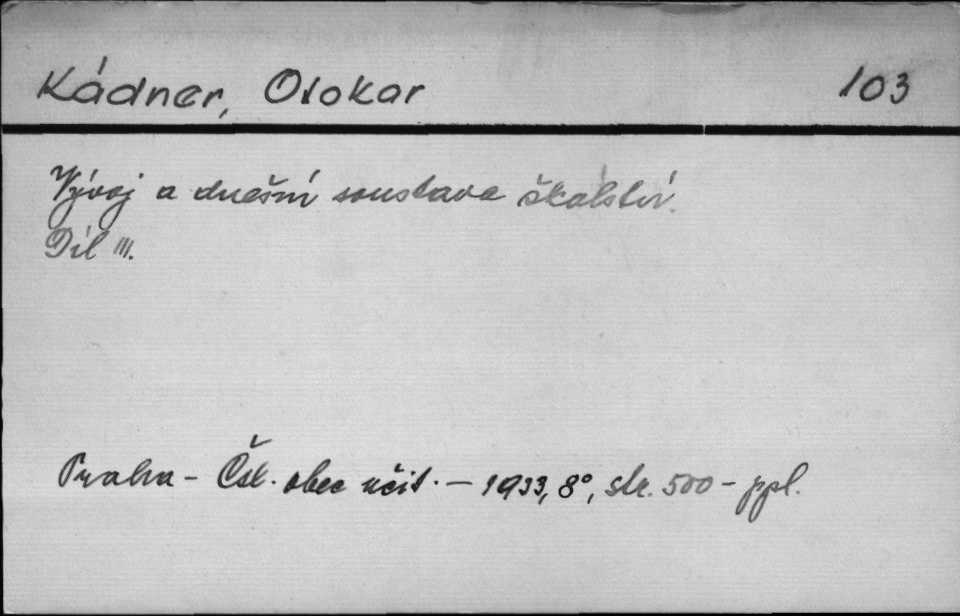 Kádner, Otokar 103
Vývoj a dnešní soustava školství.
Díl III.
Praha - Čsl. obec učit. - 1933, 8°, str. 500 - ppl.